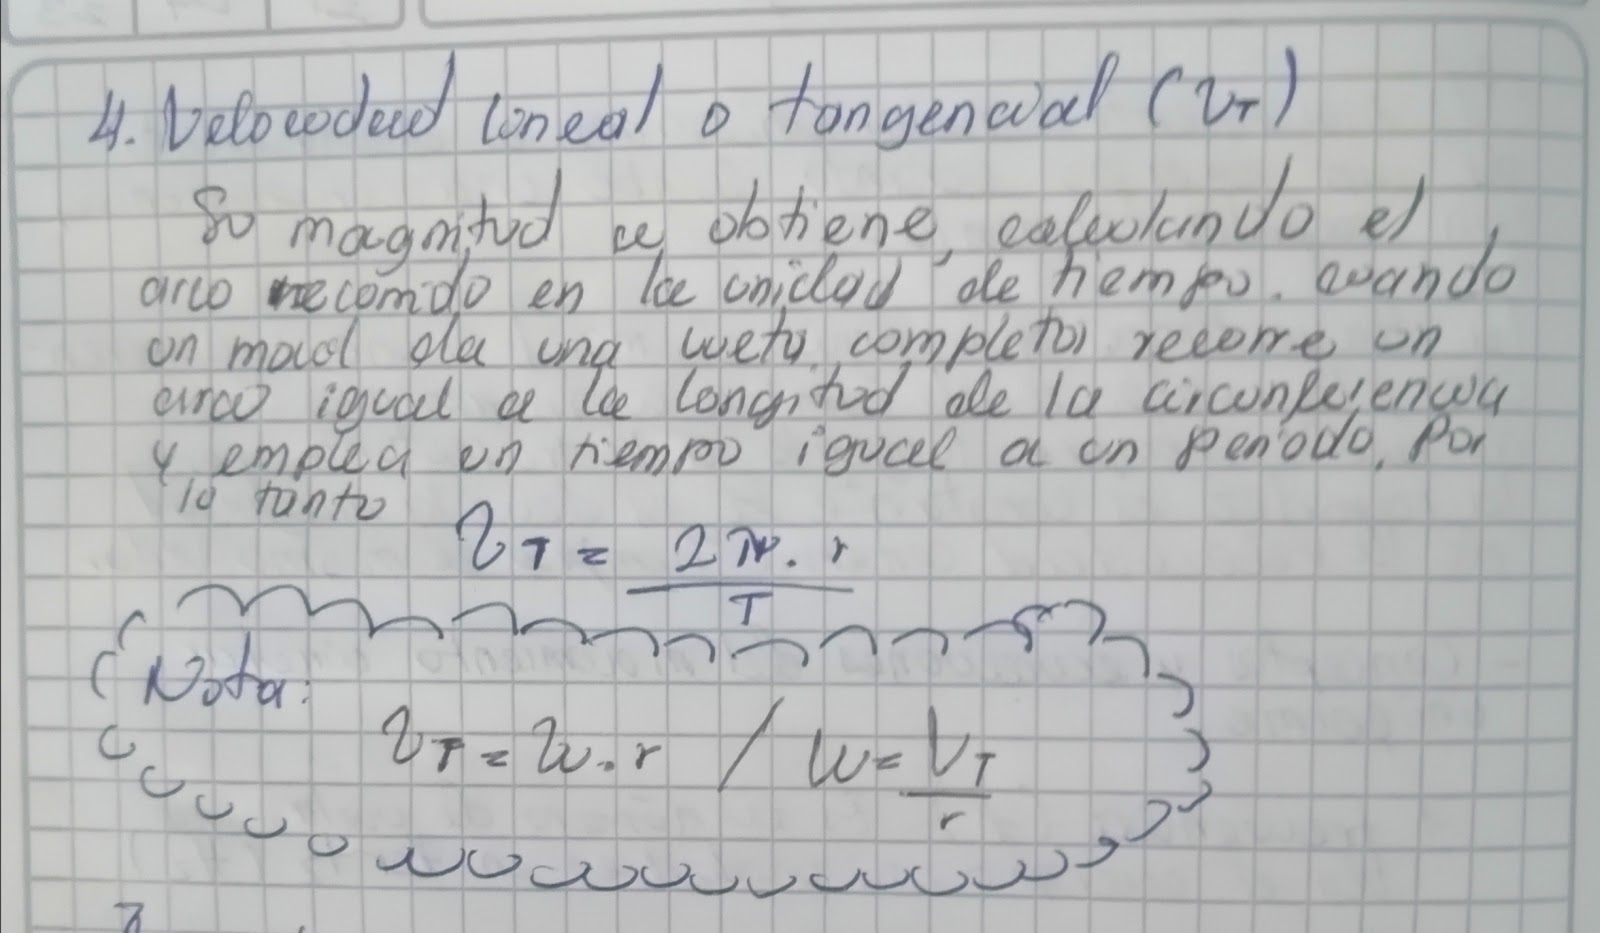 4. Velocidad lineal o tangencial (VT)
Su magnitud se obtiene, calculando el
arco recorrido en la unidad de tiempo. cuando
un movil da una vuelta completa recorre un
arco igual a la longitud de la circunferencia
y emplea un tiempo igual a un periodo. Por
lo tanto
VT = 2π . r
T
Nota:
VT = w . r / w = VT
r